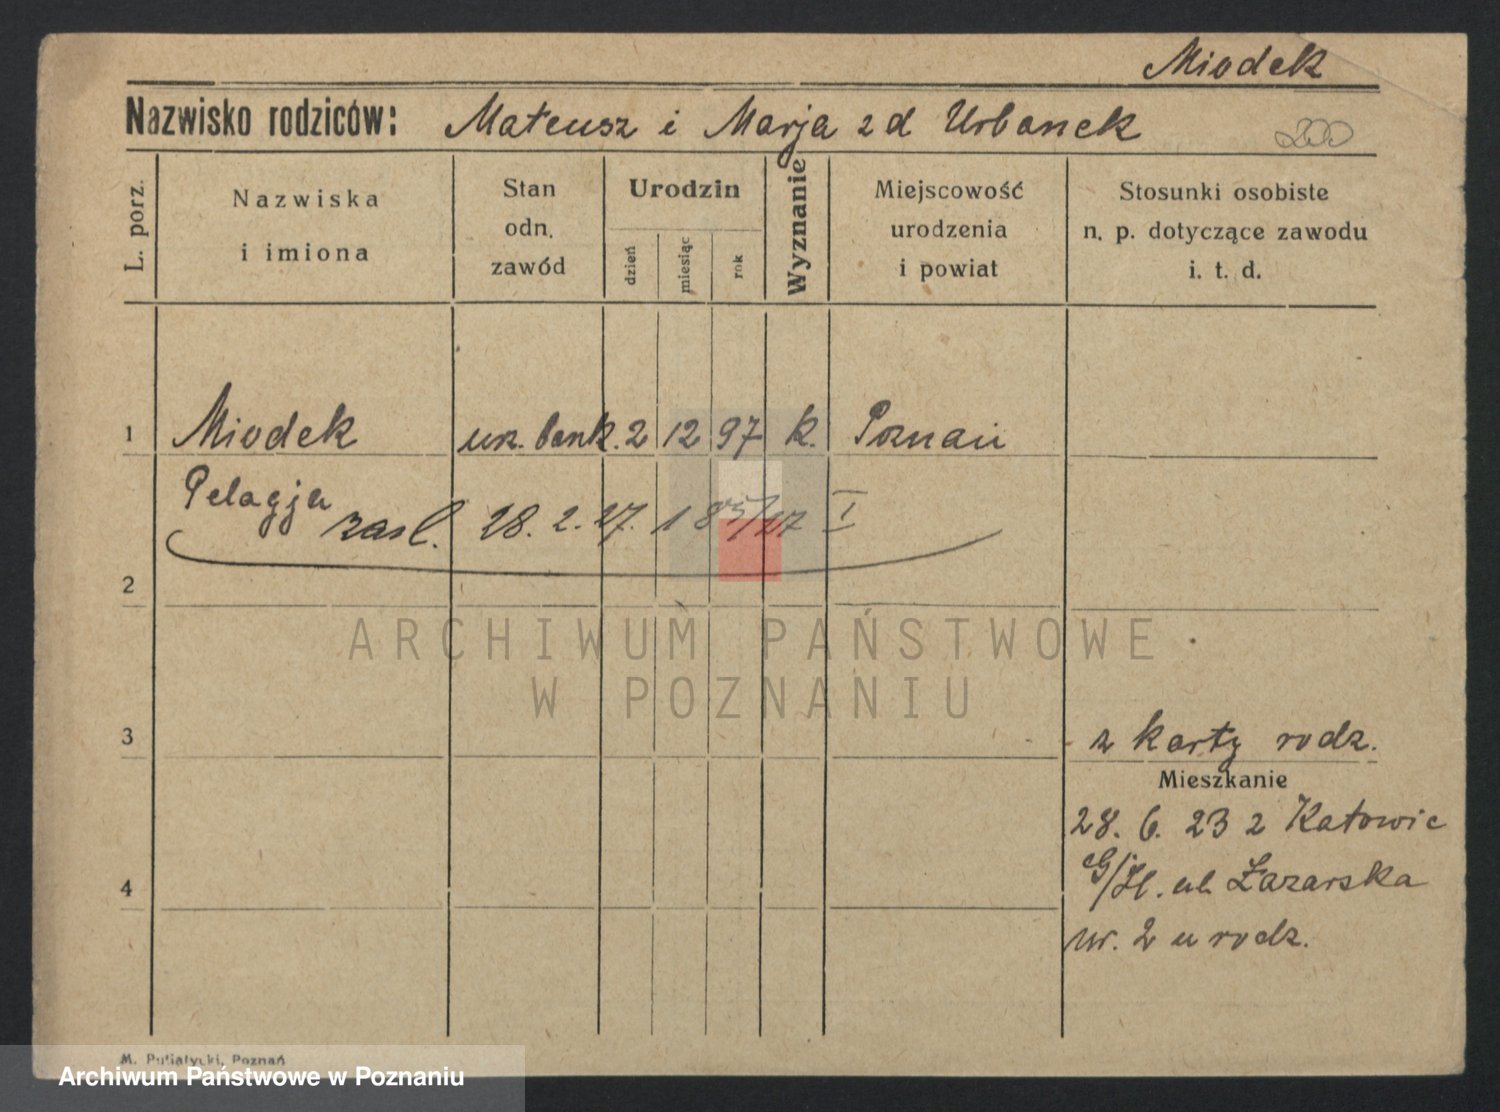 Miodek
Nazwisko rodziców: Mateusz i Marja zd Urbanek
L. porz.
Nazwiska
i imiona
Stan
odn.
zawód
Urodzin
dzień
miesiąc
rok
Wyznanie
Miejscowość
urodzenia
i powiat
Stosunki osobiste
n. p. dotyczące zawodu
i. t. d.
1 Miodek urz. bank. 2 12 97 k. Poznań
Pelagja
zasl. 28. 2. 27. I
2
ARCHIWUM PAŃSTWOWE
W POZNANIU
3
z karty rodz.
Mieszkanie
28. 6. 23 z Katowic
G/Śl. ul. Łazarska
4
nr. 2 u rodz.
M. Putiatycki, Poznań
Archiwum Państwowe w Poznaniu